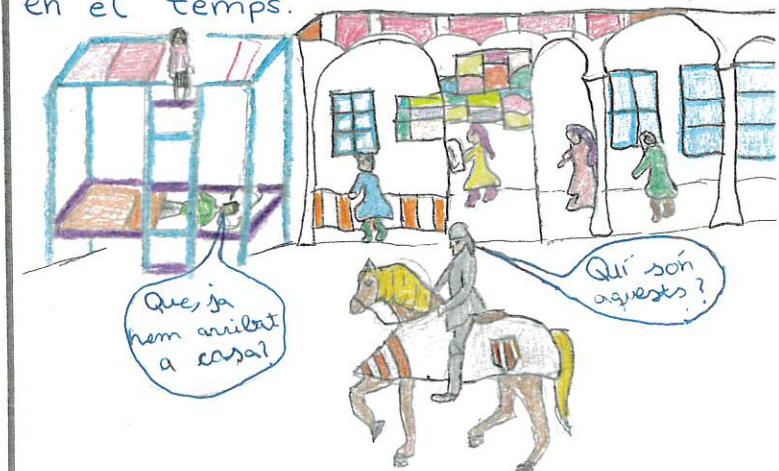 en el temps.
Que, ja
hem arribat
a casa?
Qui són
aquests?